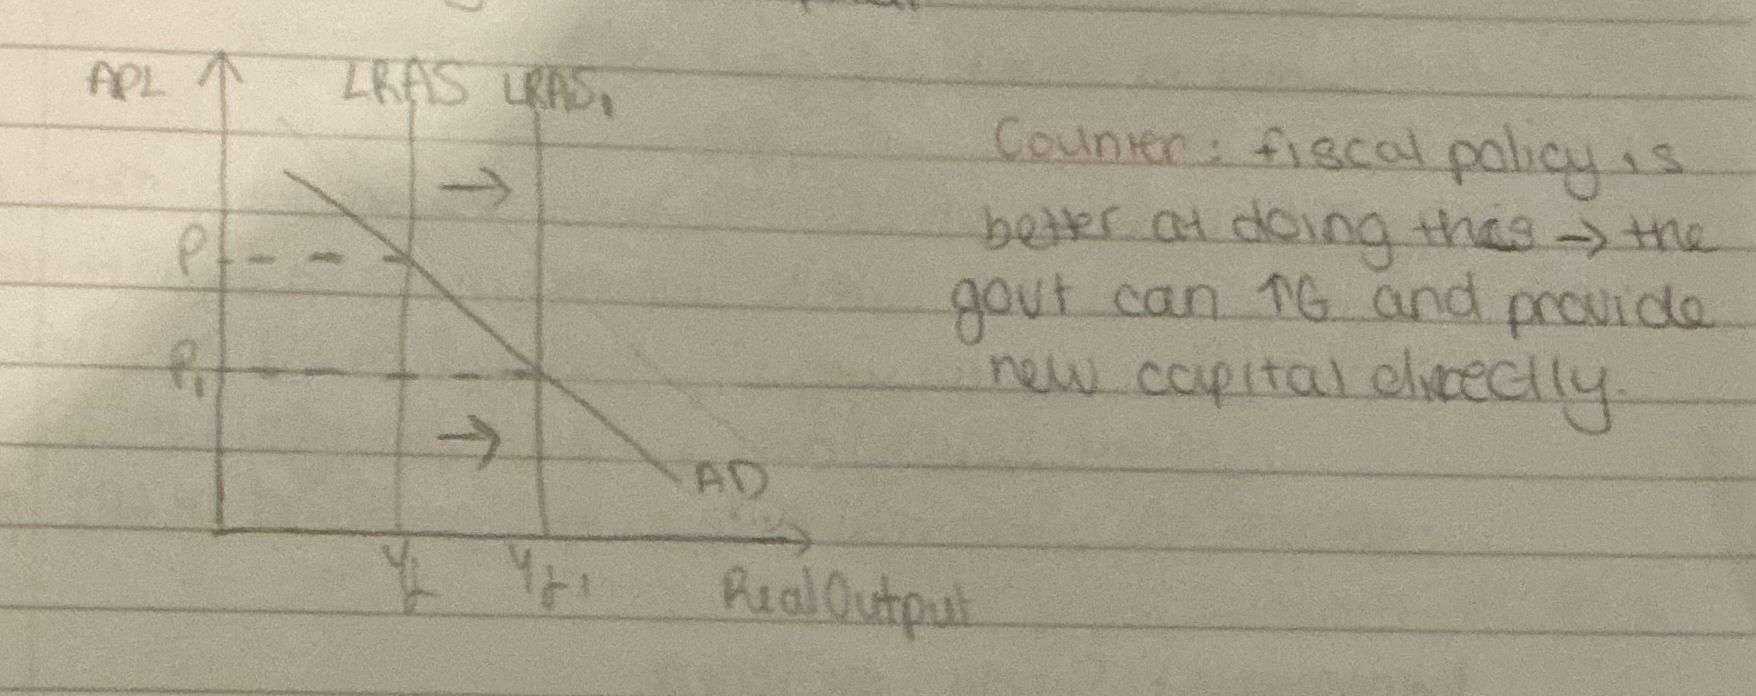 APL LRAS LRAS₁
Counter: fiscal policy is
better at doing this → the
P
govt can ↑G and provide
P₁
new capital directly.
AD
Yf Yf₁
Real Output